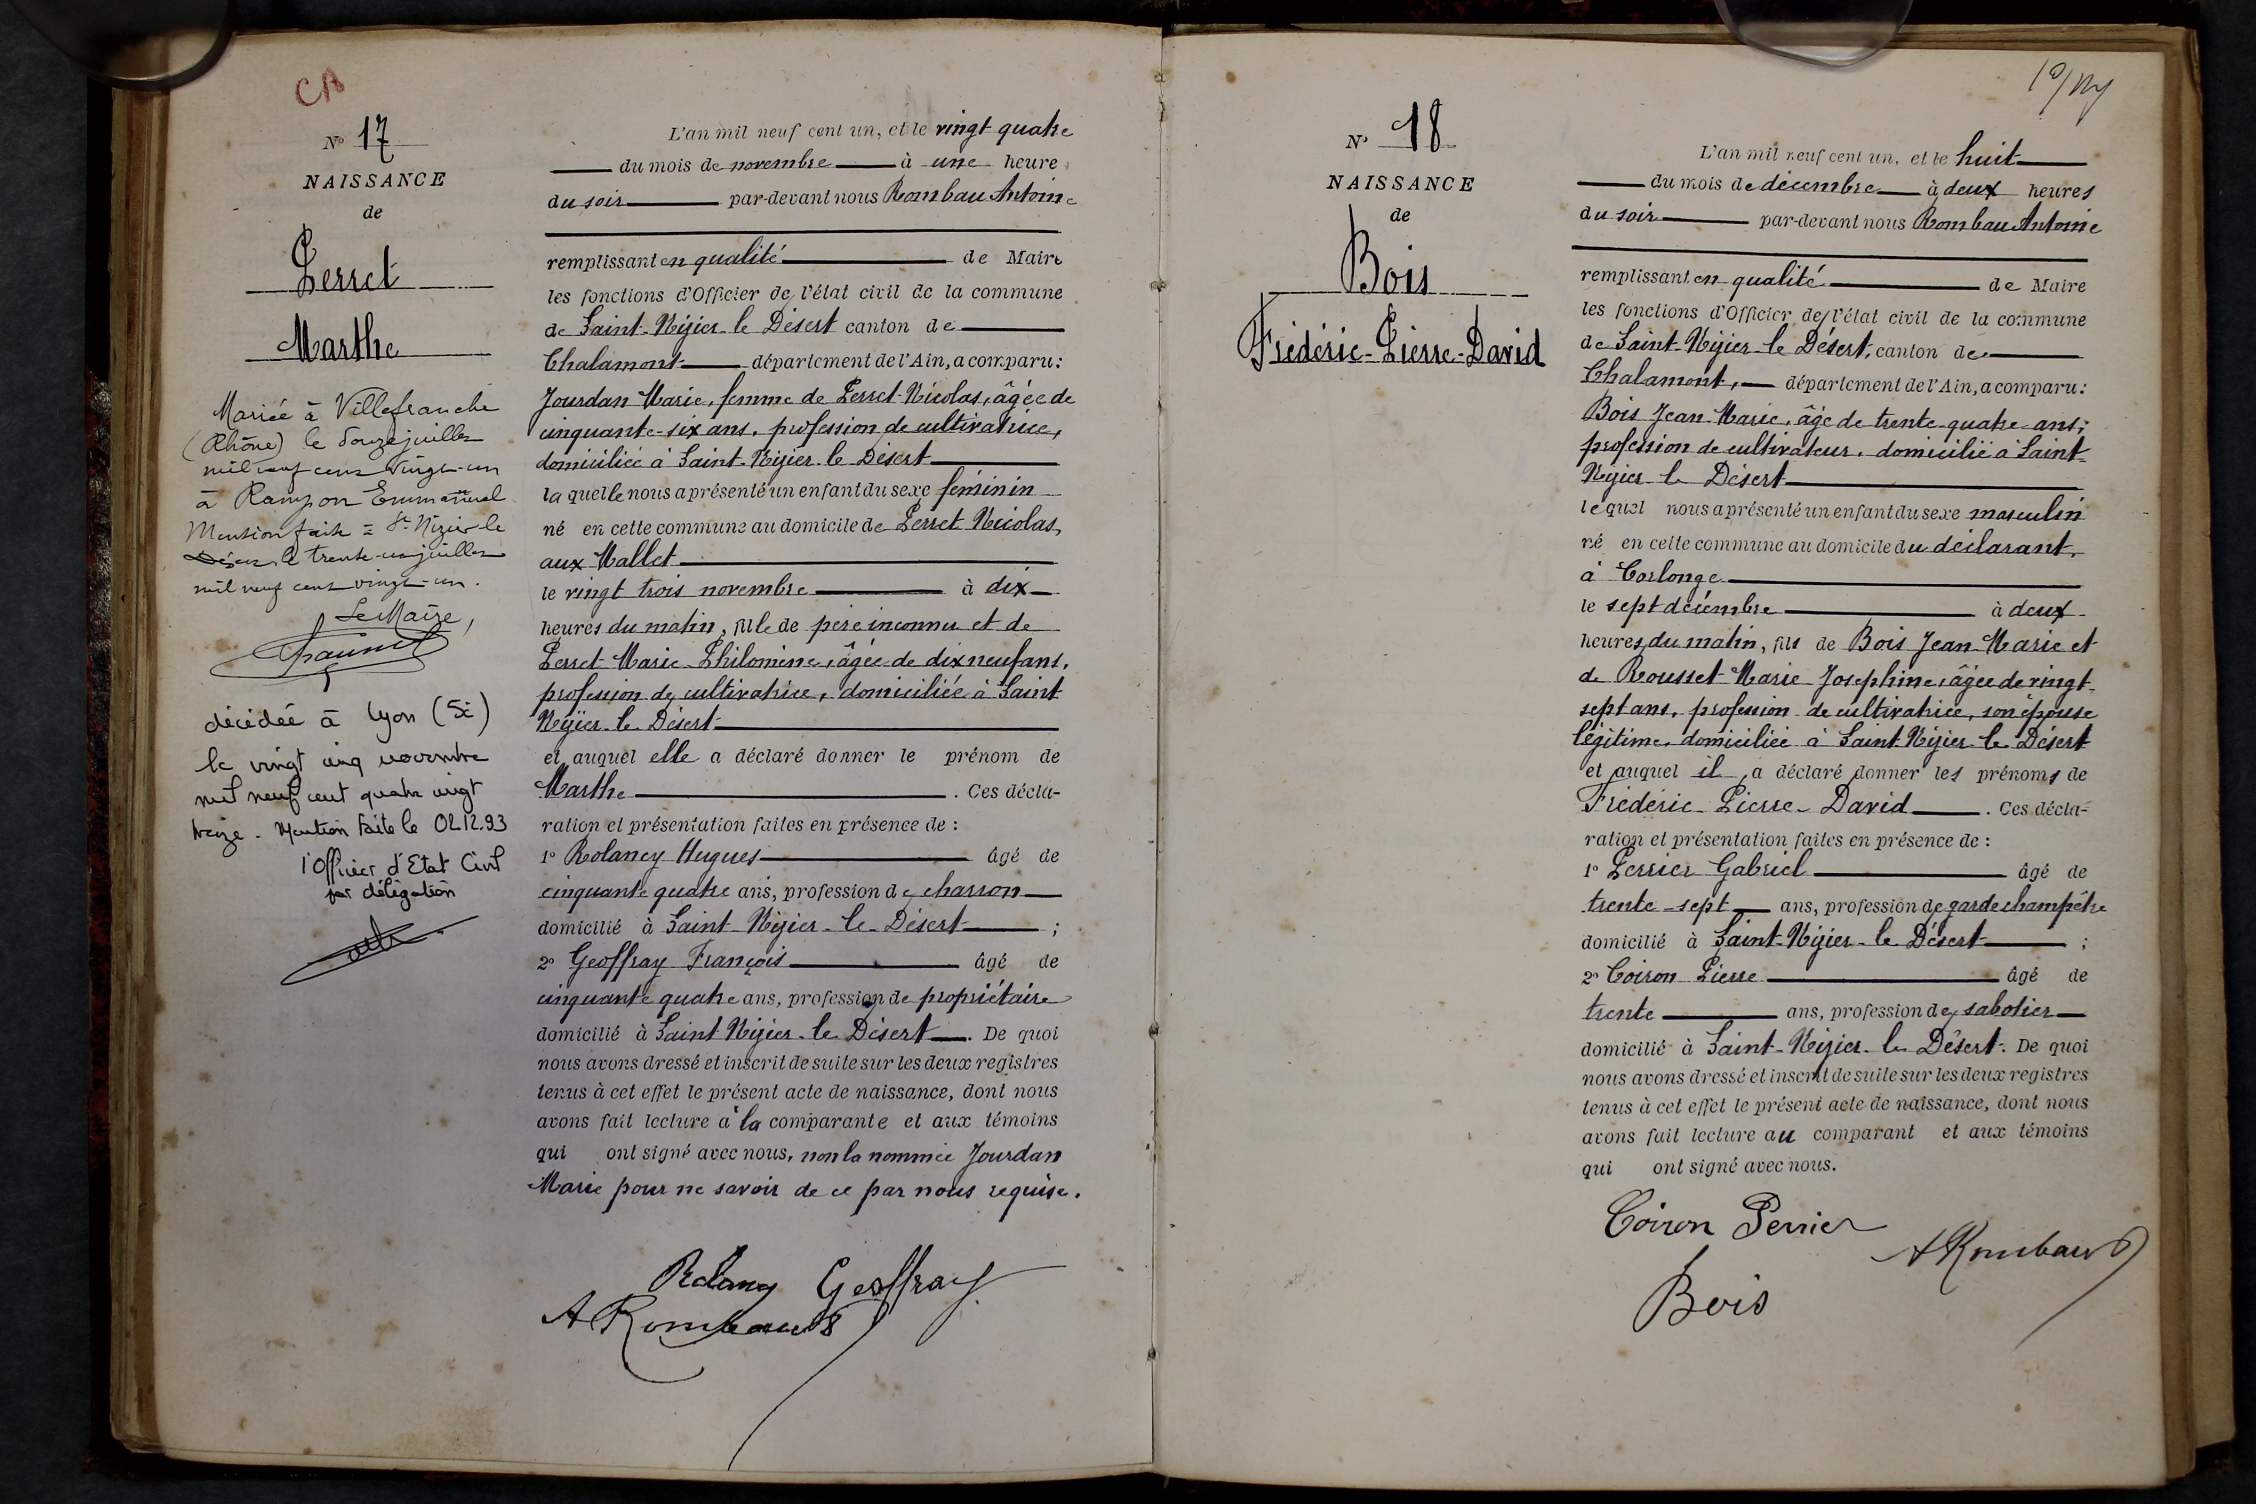 CA
N° 17
NAISSANCE
de
Perret
Marthe
Mariée à Villefranche
(Rhône) le douze juillet
mil neuf cent vingt-un
à Rampon Emmanuel
Mention faite à St Nizier le
Désert le trente-un juillet
mil neuf cent vingt-un.
Le Maire,
décédée à Lyon (5è)
le vingt cinq novembre
mil neuf cent quatre vingt
treize. Mention faite le 02.12.93
l'Officier d'Etat Civil
par délégation
L'an mil neuf cent un, et le vingt-quatre
du mois de novembre à une heure
du soir par-devant nous Rombau Antoine
remplissant en qualité de Maire
les fonctions d'Officier de l'état civil de la commune
de Saint-Nizier-le Désert canton de
Chalamont département de l'Ain, a comparu:
Jourdan Marie, femme de Perret Nicolas, âgée de
cinquante-six ans, profession de cultivatrice,
domiciliée à Saint-Nizier-le Désert
laquelle nous a présenté un enfant du sexe féminin
né en cette commune au domicile de Perret Nicolas,
aux Mallet
le vingt trois novembre à dix
heures du matin, fille de père inconnu et de
Perret Marie-Philomène, âgée de dix neuf ans,
profession de cultivatrice, domiciliée à Saint
Nizier-le Désert
et auquel elle a déclaré donner le prénom de
Marthe . Ces décla-
ration et présentation faites en présence de :
1° Rolancy Hugues âgé de
cinquante quatre ans, profession de charron
domicilié à Saint-Nizier-le-Désert ;
2° Geoffray François âgé de
cinquante quatre ans, profession de propriétaire
domicilié à Saint Nizier-le Désert . De quoi
nous avons dressé et inscrit de suite sur les deux registres
tenus à cet effet le présent acte de naissance, dont nous
avons fait lecture à la comparante et aux témoins
qui ont signé avec nous, non la nommée Jourdan
Marie pour ne savoir de ce par nous requise.
Rolancy Geoffray
A Rombaud
N° 18
NAISSANCE
de
Bois
Frédéric-Pierre-David
L'an mil neuf cent un, et le huit
du mois de décembre à deux heures
du soir par-devant nous Rombau Antoine
remplissant en qualité de Maire
les fonctions d'Officier de l'état civil de la commune
de Saint-Nizier-le Désert, canton de
Chalamont, département de l'Ain, a comparu:
Bois Jean-Marie, âgé de trente-quatre ans,
profession de cultivateur, domicilié à Saint-
Nizier-le Désert
lequel nous a présenté un enfant du sexe masculin
né en cette commune au domicile du déclarant,
à Corlonge
le sept décémbre à deux
heures du matin, fils de Bois Jean-Marie et
de Rousset Marie-Joséphine, âgée de vingt-
sept ans, profession de cultivatrice, son épouse
légitime, domiciliée à Saint-Nizier-le Désert
et auquel il a déclaré donner les prénoms de
Frédéric-Pierre-David . Ces décla-
ration et présentation faites en présence de :
1° Perrier Gabriel âgé de
trente-sept ans, profession de garde champêtre
domicilié à Saint-Nizier-le Désert ;
2° Coiron Pierre âgé de
trente ans, profession de sabotier
domicilié à Saint-Nizier-le Désert. De quoi
nous avons dressé et inscrit de suite sur les deux registres
tenus à cet effet le présent acte de naissance, dont nous
avons fait lecture au comparant et aux témoins
qui ont signé avec nous.
Coiron Perrier
A Rombaud
Bois